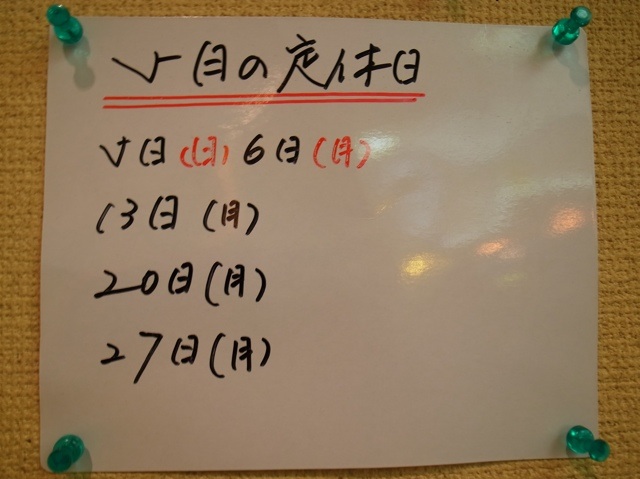 5月の定休日
5日(日)6日(月)
13日(月)
20日(月)
27日(月)